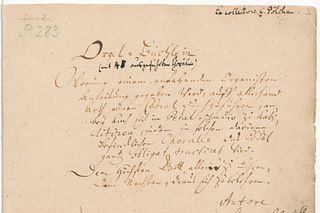 Ex collectione G. Pölchau.
P 283
Orgel-Büchlein
(mit 48 ausgeführten Chorälen)
Worinne einem anfahenden Organisten
Anleitung gegeben wird, auff allerhand
Arth einen Choral durchzuführen, an-
bey auch sich im Pedal studio zu habi-
litiren, indem in solchen darinne
befindlichen Choralen das Pedal
gantz obligat tractiret wird.
Dem Höchsten Gott allein' zu Ehren,
Dem Nechsten, draus sich zu belehren.
Autore